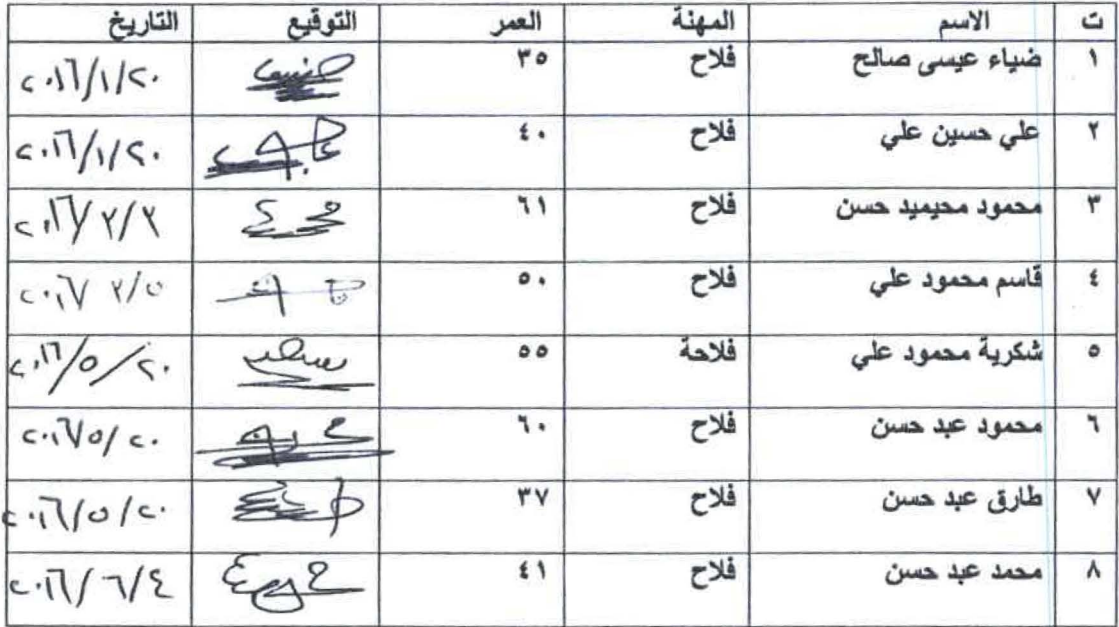 ت الاسم المهنة العمر التوقيع التاريخ
١ ضياء عيسى صالح فلاح ٣٥ ٢٠١٦/١/٢٠
٢ علي حسين علي فلاح ٤٠ ٢٠١٦/١/٢٠
٣ محمود محيميد حسن فلاح ٦١ ٢٠١٦/٢/٢
٤ قاسم محمود علي فلاح ٥٠
٥ شكرية محمود علي فلاحة ٥٥ ٢٠١٦/٥/٢٠
٦ محمود عبد حسن فلاح ٦٠ ٢٠١٦/٥/٢٠
٧ طارق عبد حسن فلاح ٣٧ ٢٠١٦/٥/٢٠
٨ محمد عبد حسن فلاح ٤١ ٢٠١٦/٦/٤